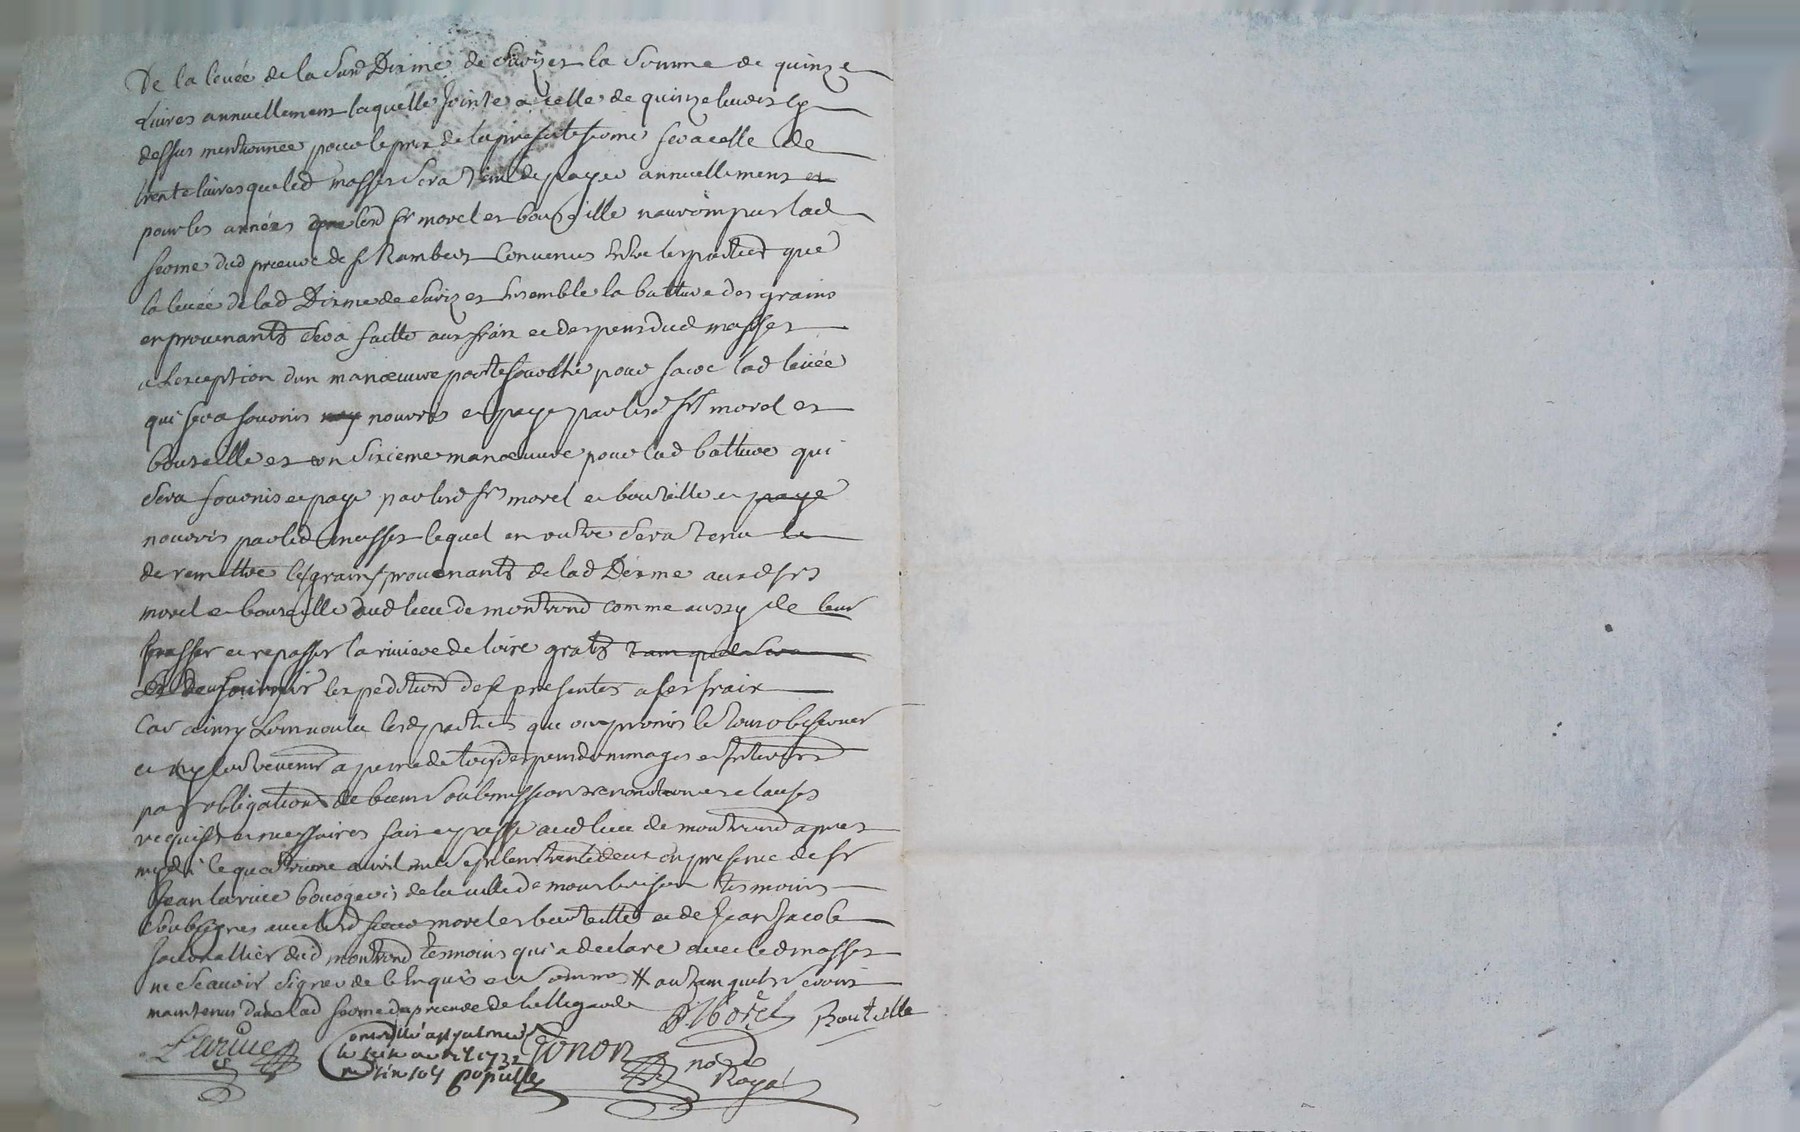 De la levée de la susd Dixme de Savizet la Somme de quinze
Livres annuellement laquelle Jointe a celle de quinze livres cy
dessus mentionnée pour le prix de la presente ferme sera celle de
trente livres que led masset Sera tenu de payer annuellement et
pour les années que lesd srs morel et bouteille nauront pas lad
ferme dud prieuré de st Rambert Convenus Entre les parties que
la levée de lad Dixme de Savizet Ensemble la batture des grains
en provenants Sera faitte aux frais et depens dud masset
a Lexception dun manoeuvre porte fourche pour faire lad levée
qui sera fournis nourris et payé par lesd srs morel et
bouteille et un Sixieme manoeuvre pour lad batture qui
Sera fournis et payé par lesd srs morel et bouteille et paye
nourris par led masset lequel en outre Sera tenu de
de remettre les grains provenants de lad Dixme auxd srs
morel et bouteille aud lieu de montrond comme aussy de leur
passer et repasser la riviere de loire gratis tam quils Seron
Et de fournir lexpedition des presentes a ses fraix
Car ainsy Lont voulu lesd parties que ont promis le tout observer
et ny contrevenir a peine de tous depens dommages et interets
par obligations de biens Soubmissions renonciations et clauses
requises et necessaires fait et passé aud lieu de montrond apres
midy le quatrieme avril mil sept cent trente deux en presence de sr
Jean larue bourgeois de la ville de montbrison tesmoins
Soubsignes avec lesd sieurs morel et bouteille et de Jean Jacob
dud montrond tesmoins qui a declaré avec led masset
ne Scavoir Signer de ce Enquis et Sommes # autam quils Seront
maintenus dans lad ferme du prieuré de bellegarde
Morel Bouteille
Larue
Conon
nore
Royal
Controllé a
le avril 1732